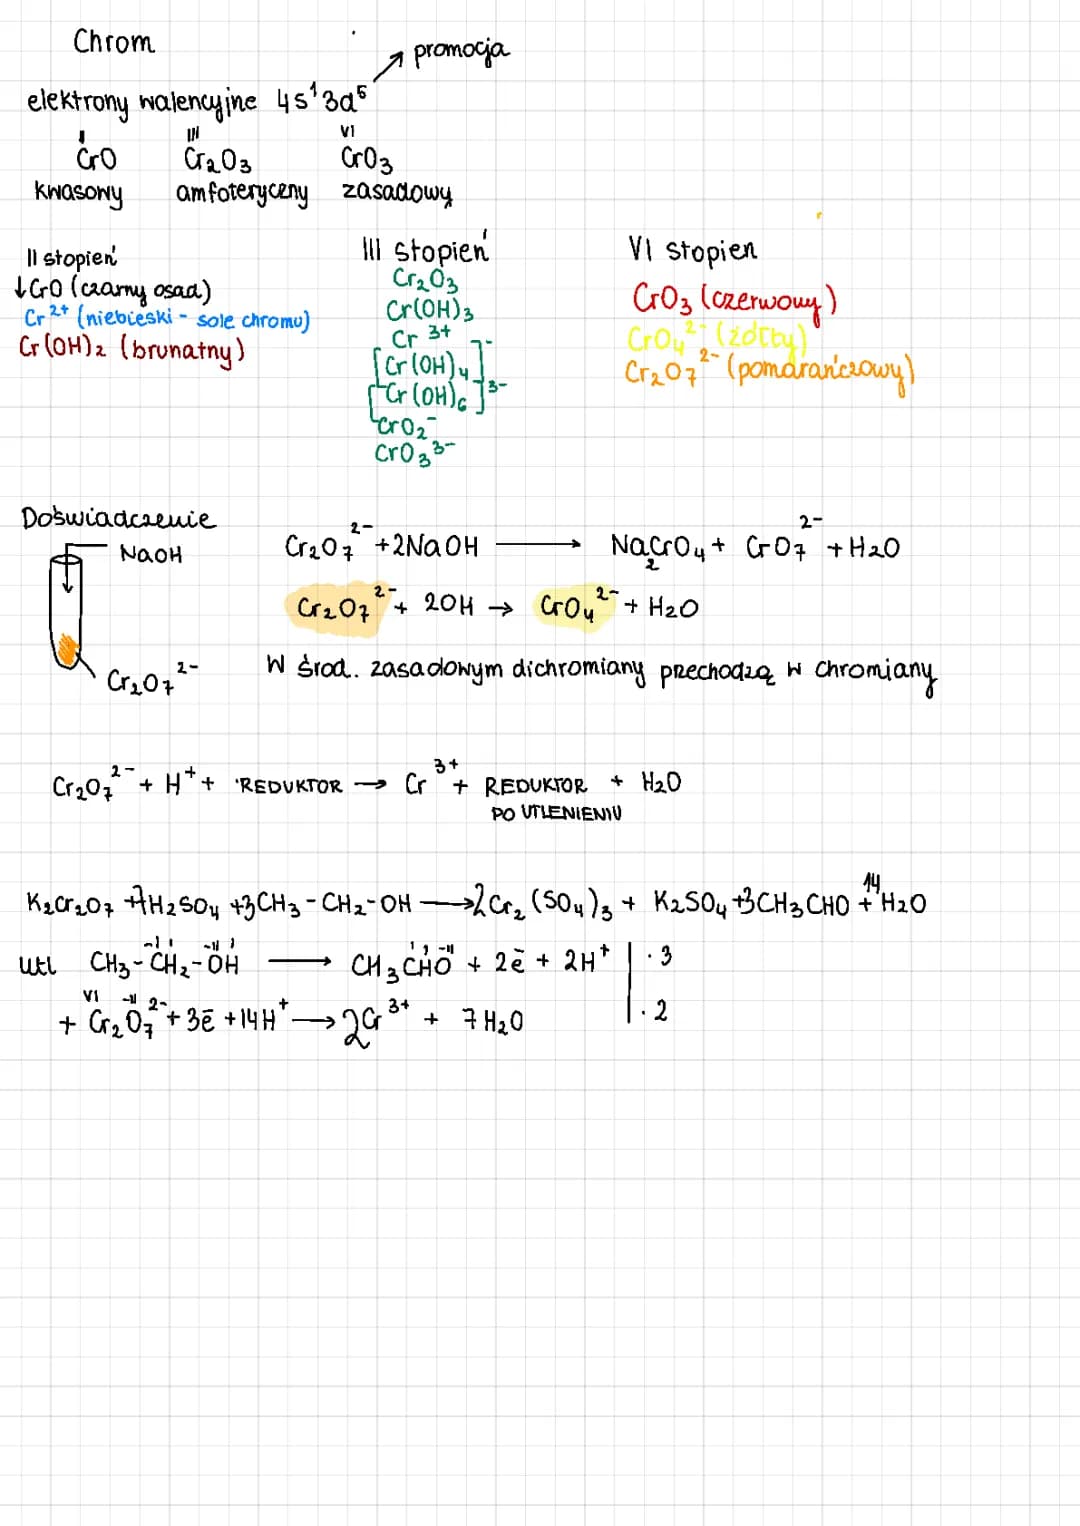 Chrom
promocja
elektrony walencyjne 4s¹3d⁵
II III VI
CrO Cr₂O₃ CrO₃
kwasowy amfoteryczny zasadowy
II stopień
↓CrO (czarny osad)
Cr²⁺ (niebieski - sole chromu)
Cr(OH)₂ (brunatny)
III stopień
Cr₂O₃
Cr(OH)₃
Cr³⁺
[Cr(OH)₄]⁻
[Cr(OH)₆]³⁻
CrO₂⁻
CrO₃³⁻
VI stopien
CrO₃ (czerwowy)
CrO₄²⁻ (żółty)
Cr₂O₇²⁻ (pomarańczowy)
Doświadczenie
NaOH
Cr₂O₇²⁻
Cr₂O₇²⁻ + 2NaOH ⟶ Na₂CrO₄ + CrO₇²⁻ + H₂O
Cr₂O₇²⁻ + 2OH → CrO₄²⁻ + H₂O
W środ. zasadowym dichromiany przechodzą w chromiany
Cr₂O₇²⁻ + H⁺ + REDUKTOR → Cr³⁺ + REDUKTOR + H₂O
PO UTLENIENIU
K₂Cr₂O₇ + 7H₂SO₄ + 3CH₃-CH₂-OH ⟶ 2Cr₂(SO₄)₃ + K₂SO₄ + 3CH₃CHO + 14H₂O
-I I -II I I I -II
utl CH₃-CH₂-OH ⟶ CH₃CHO + 2ē + 2H⁺ | ·3
VI -II
+ Cr₂O₇²⁻ + 3ē + 14H⁺ ⟶ 2Cr³⁺ + 7H₂O | ·2